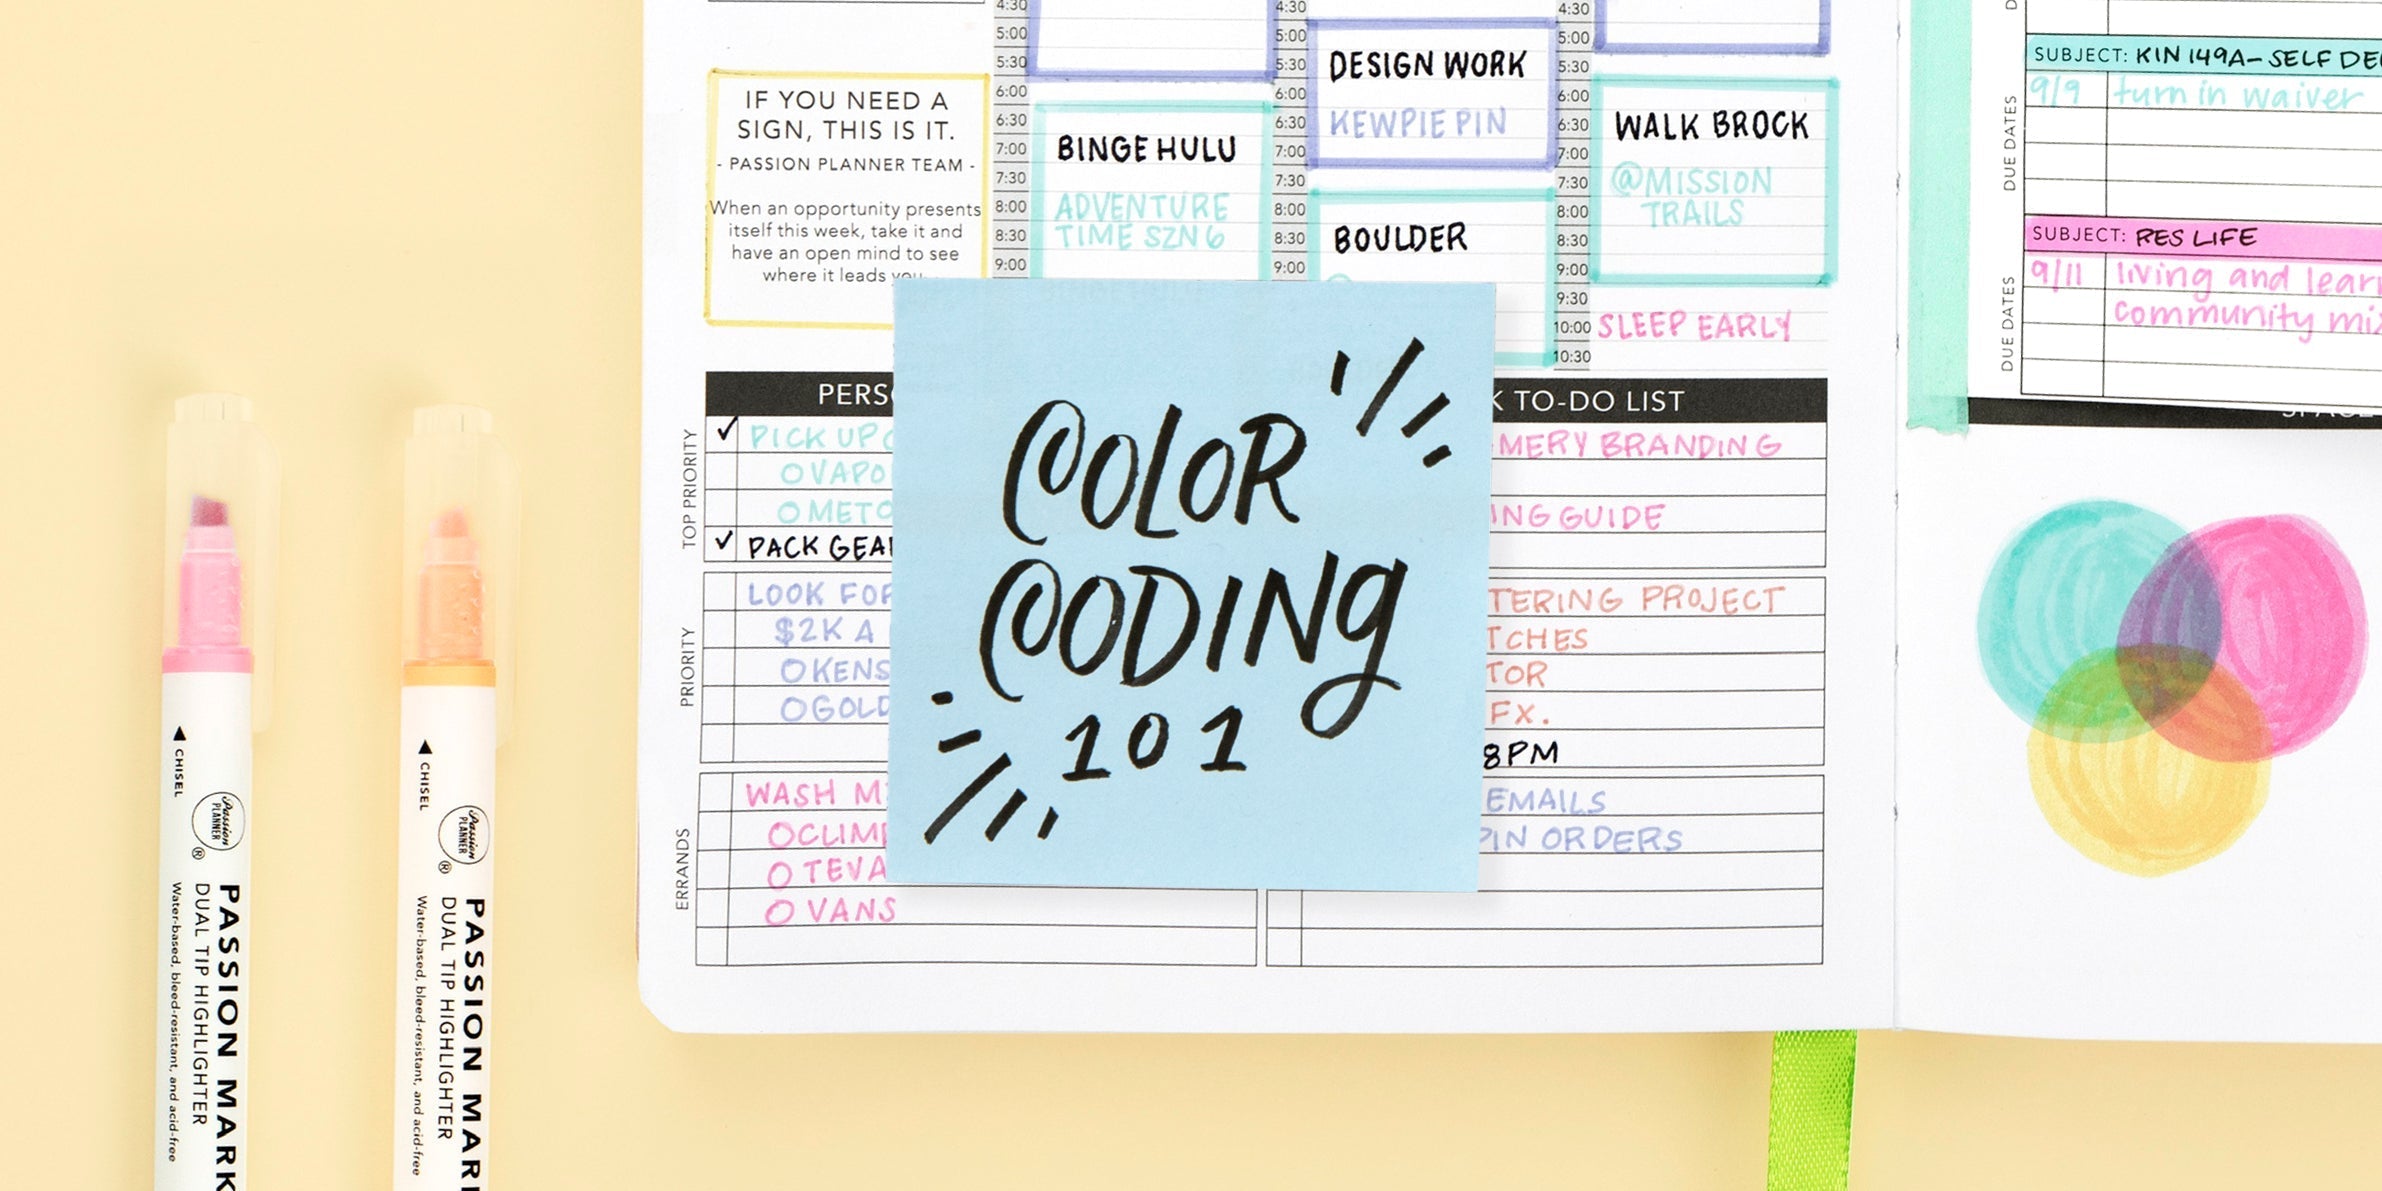 4:30
5:00
5:30
6:00
6:30
7:00
7:30
8:00
8:30
9:00
IF YOU NEED A
SIGN, THIS IS IT.
- PASSION PLANNER TEAM -
When an opportunity presents
itself this week, take it and
have an open mind to see
where it leads you
BINGE HULU
ADVENTURE
TIME SZN 6
4:30
5:00
5:30
6:00
6:30
7:00
7:30
8:00
8:30
9:00
DESIGN WORK
KEWPIE PIN
BOULDER
4:30
5:00
5:30
6:00
6:30
7:00
7:30
8:00
8:30
9:00
9:30
10:00
10:30
WALK BROCK
@MISSION
TRAILS
SLEEP EARLY
PERSO
TOP PRIORITY
✓ PICK UP
OVAPO
OMETO
✓ PACK GEA
PRIORITY
LOOK FOR
$2K A
OKENS
OGOLD
ERRANDS
WASH M
OCLIM
O TEVA
O VANS
COLOR
CODING
101
K TO-DO LIST
MERY BRANDING
ING GUIDE
TERING PROJECT
TCHES
TOR
FX.
8PM
EMAILS
PIN ORDERS
SUBJECT: KIN 149A-SELF DE
DUE DATES
9/9 turn in waiver
SUBJECT: RES LIFE
DUE DATES
9/11 living and lear
community mi
CHISEL
Passion
PLANNER
®
PASSION MARK
DUAL TIP HIGHLIGHTER
Water-based, bleed-resistant, and acid-free
CHISEL
Passion
PLANNER
®
PASSION MAR
DUAL TIP HIGHLIGHTER
Water-based, bleed-resistant, and acid-free